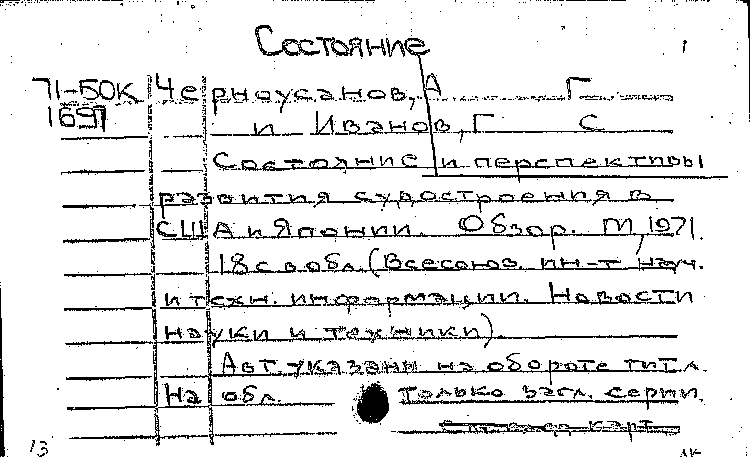 Состояние
71-50К Черноусанов, А Г
1697 и Иванов, Г С
Состояние и перспективы
развития судостроения в
США и Японии. Обзор. М, 1971.
18 с в обл. (Всесоюз. ин-т науч.
и техн. информации. Новости
науки и техники).
Авт. указани на обороте тит л.
На обл. только загл. серии.
карт
13 АК